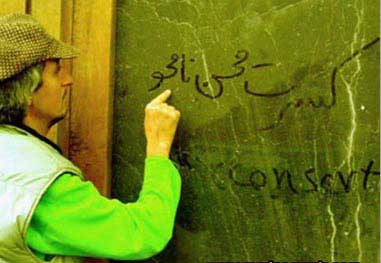 کنسرت محسن نامجو
consert